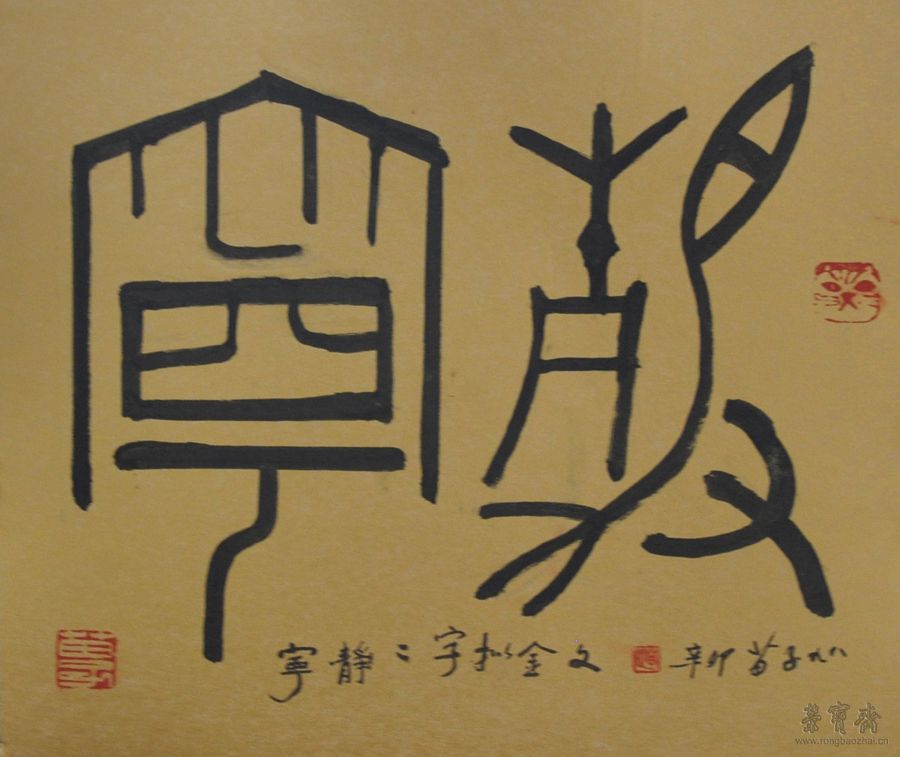 寧靜
寧靜二字拟金文 辛卯苗子九八
榮寶齋
www.rongbaozhai.cn